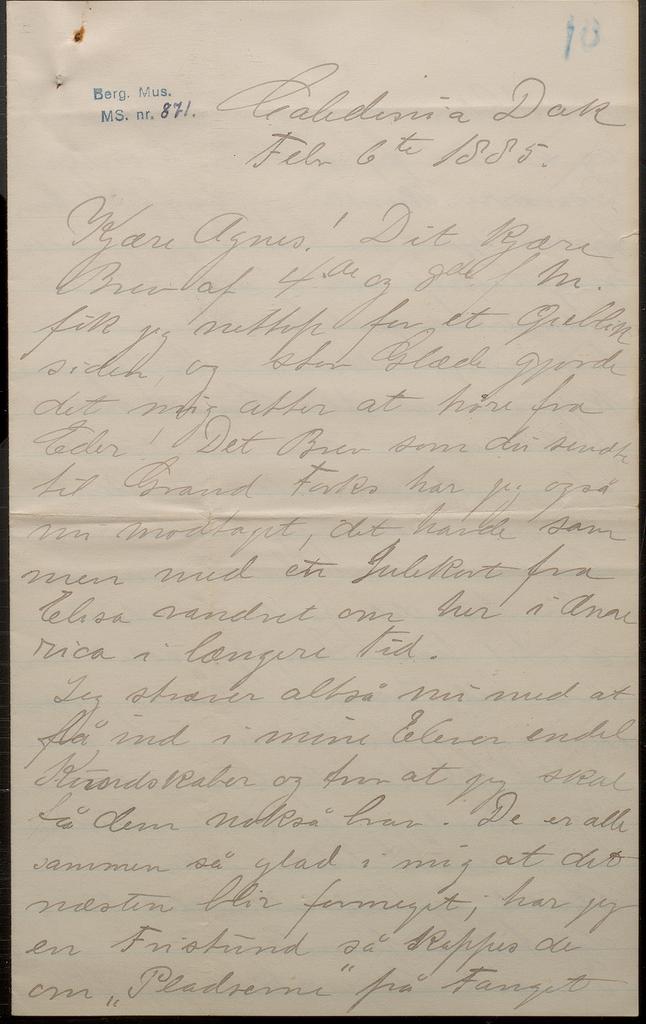 10
Berg. Mus.
MS. nr. 871.
Caledonia Dak
Febr 6te 1885.
Kjære Agnes! Dit kjære
Brev af 4de og 8de f. M.
fik jeg nettop for et Øieblik
siden, og stor Glæde gjorde
det mig atter at høre fra
Eder! Det Brev som du sendte
til Grand Forks har jeg også
nu modtaget, det havde sam
men med et Julekort fra
Elisa vandret om her i Ame
rica i længere Tid.
Jeg stræver altså nu med at
få ind i mine Elever endel
Kundskaber og tror at jeg skal
få dem nokså brav. De er alle
sammen så glad i mig at det
næsten blir formeget; har jeg
en Fristund så kappes de
om „Pladserne" på Fanget